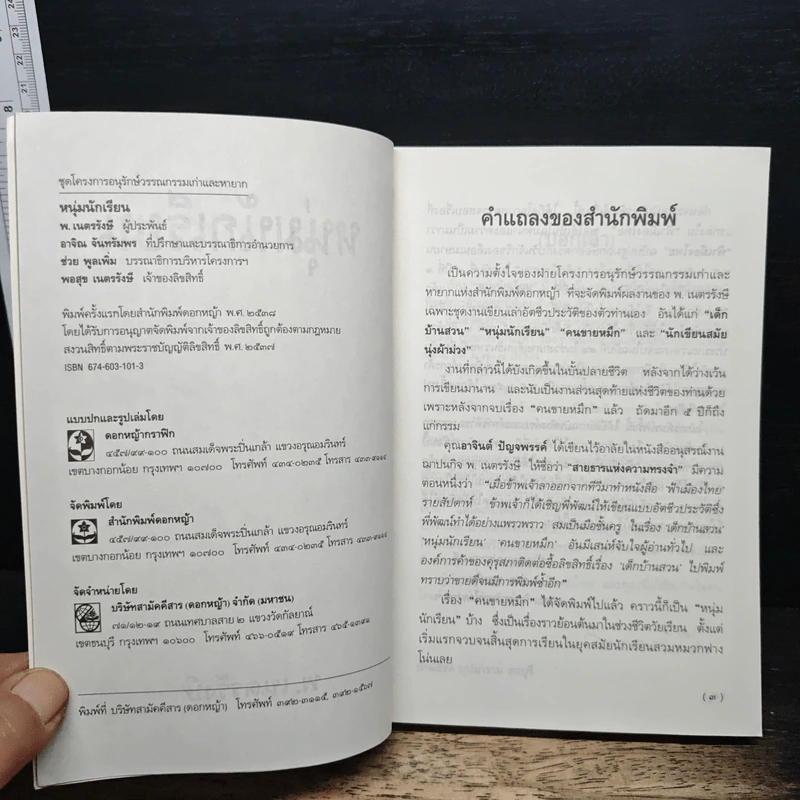 ชุดโครงการอนุรักษ์วรรณกรรมเก่าและหายาก
หนุ่มนักเรียน
พ. เนตรรังษี ผู้ประพันธ์
อาจิณ จันทรัมพร ที่ปรึกษาและบรรณาธิการอำนวยการ
ช่วย พูลเพิ่ม บรรณาธิการบริหารโครงการฯ
พอสุข เนตรรังษี เจ้าของลิขสิทธิ์
พิมพ์ครั้งแรกโดยสำนักพิมพ์ดอกหญ้า พ.ศ. ๒๕๓๘
โดยได้รับการอนุญาตจัดพิมพ์จากเจ้าของลิขสิทธิ์ถูกต้องตามกฎหมาย
สงวนสิทธิ์ตามพระราชบัญญัติลิขสิทธิ์ พ.ศ. ๒๕๓๗
ISBN 674-603-101-3
แบบปกและรูปเล่มโดย
ดอกหญ้ากราฟิก
๔๕๗/๙๙-๑๐๐ ถนนสมเด็จพระปิ่นเกล้า แขวงอรุณอมรินทร์
เขตบางกอกน้อย กรุงเทพฯ ๑๐๗๐๐ โทรศัพท์ ๔๓๔-๐๒๓๕ โทรสาร
จัดพิมพ์โดย
สำนักพิมพ์ดอกหญ้า
๔๕๗/๙๙-๑๐๐ ถนนสมเด็จพระปิ่นเกล้า แขวงอรุณอมรินทร์
เขตบางกอกน้อย กรุงเทพฯ ๑๐๗๐๐ โทรศัพท์ ๔๓๔-๐๒๓๕ โทรสาร
จัดจำหน่ายโดย
บริษัทสามัคคีสาร (ดอกหญ้า) จำกัด (มหาชน)
๗๑/๑๒-๑๙ ถนนเทศบาลสาย ๒ แขวงวัดกัลยาณ์
เขตธนบุรี กรุงเทพฯ ๑๐๖๐๐ โทรศัพท์ ๔๖๖-๐๕๑๙ โทรสาร ๔๖๕-๑๓๙๑
พิมพ์ที่ บริษัทสามัคคีสาร (ดอกหญ้า) โทรศัพท์ ๓๙๒-๓๑๑๕, ๓๙๒-๑๕๖๗
คำแถลงของสำนักพิมพ์
เป็นความตั้งใจของฝ่ายโครงการอนุรักษ์วรรณกรรมเก่าและ
หายากแห่งสำนักพิมพ์ดอกหญ้า ที่จะจัดพิมพ์ผลงานของ พ. เนตรรังษี
เฉพาะชุดงานเขียนเล่าอัตชีวประวัติของตัวท่านเอง อันได้แก่ "เด็ก
บ้านสวน" "หนุ่มนักเรียน" "คนขายหมึก" และ "นักเขียนสมัย
นุ่งผ้าม่วง"
งานที่กล่าวนี้ได้บังเกิดขึ้นในบั้นปลายชีวิต หลังจากได้ว่างเว้น
การเขียนมานาน และนับเป็นงานส่วนสุดท้ายแห่งชีวิตของท่านด้วย
เพราะหลังจากจบเรื่อง "คนขายหมึก" แล้ว ถัดมาอีก ๕ ปีก็ถึง
แก่กรรม
คุณอาจินต์ ปัญจพรรค์ ได้เขียนไว้อาลัยในหนังสืออนุสรณ์งาน
ฌาปนกิจ พ. เนตรรังษี ให้ชื่อว่า "สายธารแห่งความทรงจำ" มีความ
ตอนหนึ่งว่า "เมื่อข้าพเจ้าลาออกจากทีวีมาทำหนังสือ 'ฟ้าเมืองไทย'
รายสัปดาห์ ข้าพเจ้าก็ได้เชิญพี่พัฒน์ให้เขียนแบบอัตชีวประวัติซึ่ง
พี่พัฒน์ทำได้อย่างแพรวพราว สมเป็นมือชั้นครู ในเรื่อง 'เด็กบ้านสวน'
'หนุ่มนักเรียน' 'คนขายหมึก' อันมีเสน่ห์จับใจผู้อ่านทั่วไป และ
องค์การค้าของคุรุสภาติดต่อซื้อลิขสิทธิ์เรื่อง 'เด็กบ้านสวน' ไปพิมพ์
ทราบว่าขายดีจนมีการพิมพ์ซ้ำอีก"
เรื่อง "คนขายหมึก" ได้จัดพิมพ์ไปแล้ว คราวนี้ก็เป็น "หนุ่ม
นักเรียน" บ้าง ซึ่งเป็นเรื่องราวย้อนต้นมาในช่วงชีวิตวัยเรียน ตั้งแต่
เริ่มแรกจวบจนสิ้นสุดการเรียนในยุคสมัยนักเรียนสวมหมวกฟาง
โน่นเลย
( ๓ )